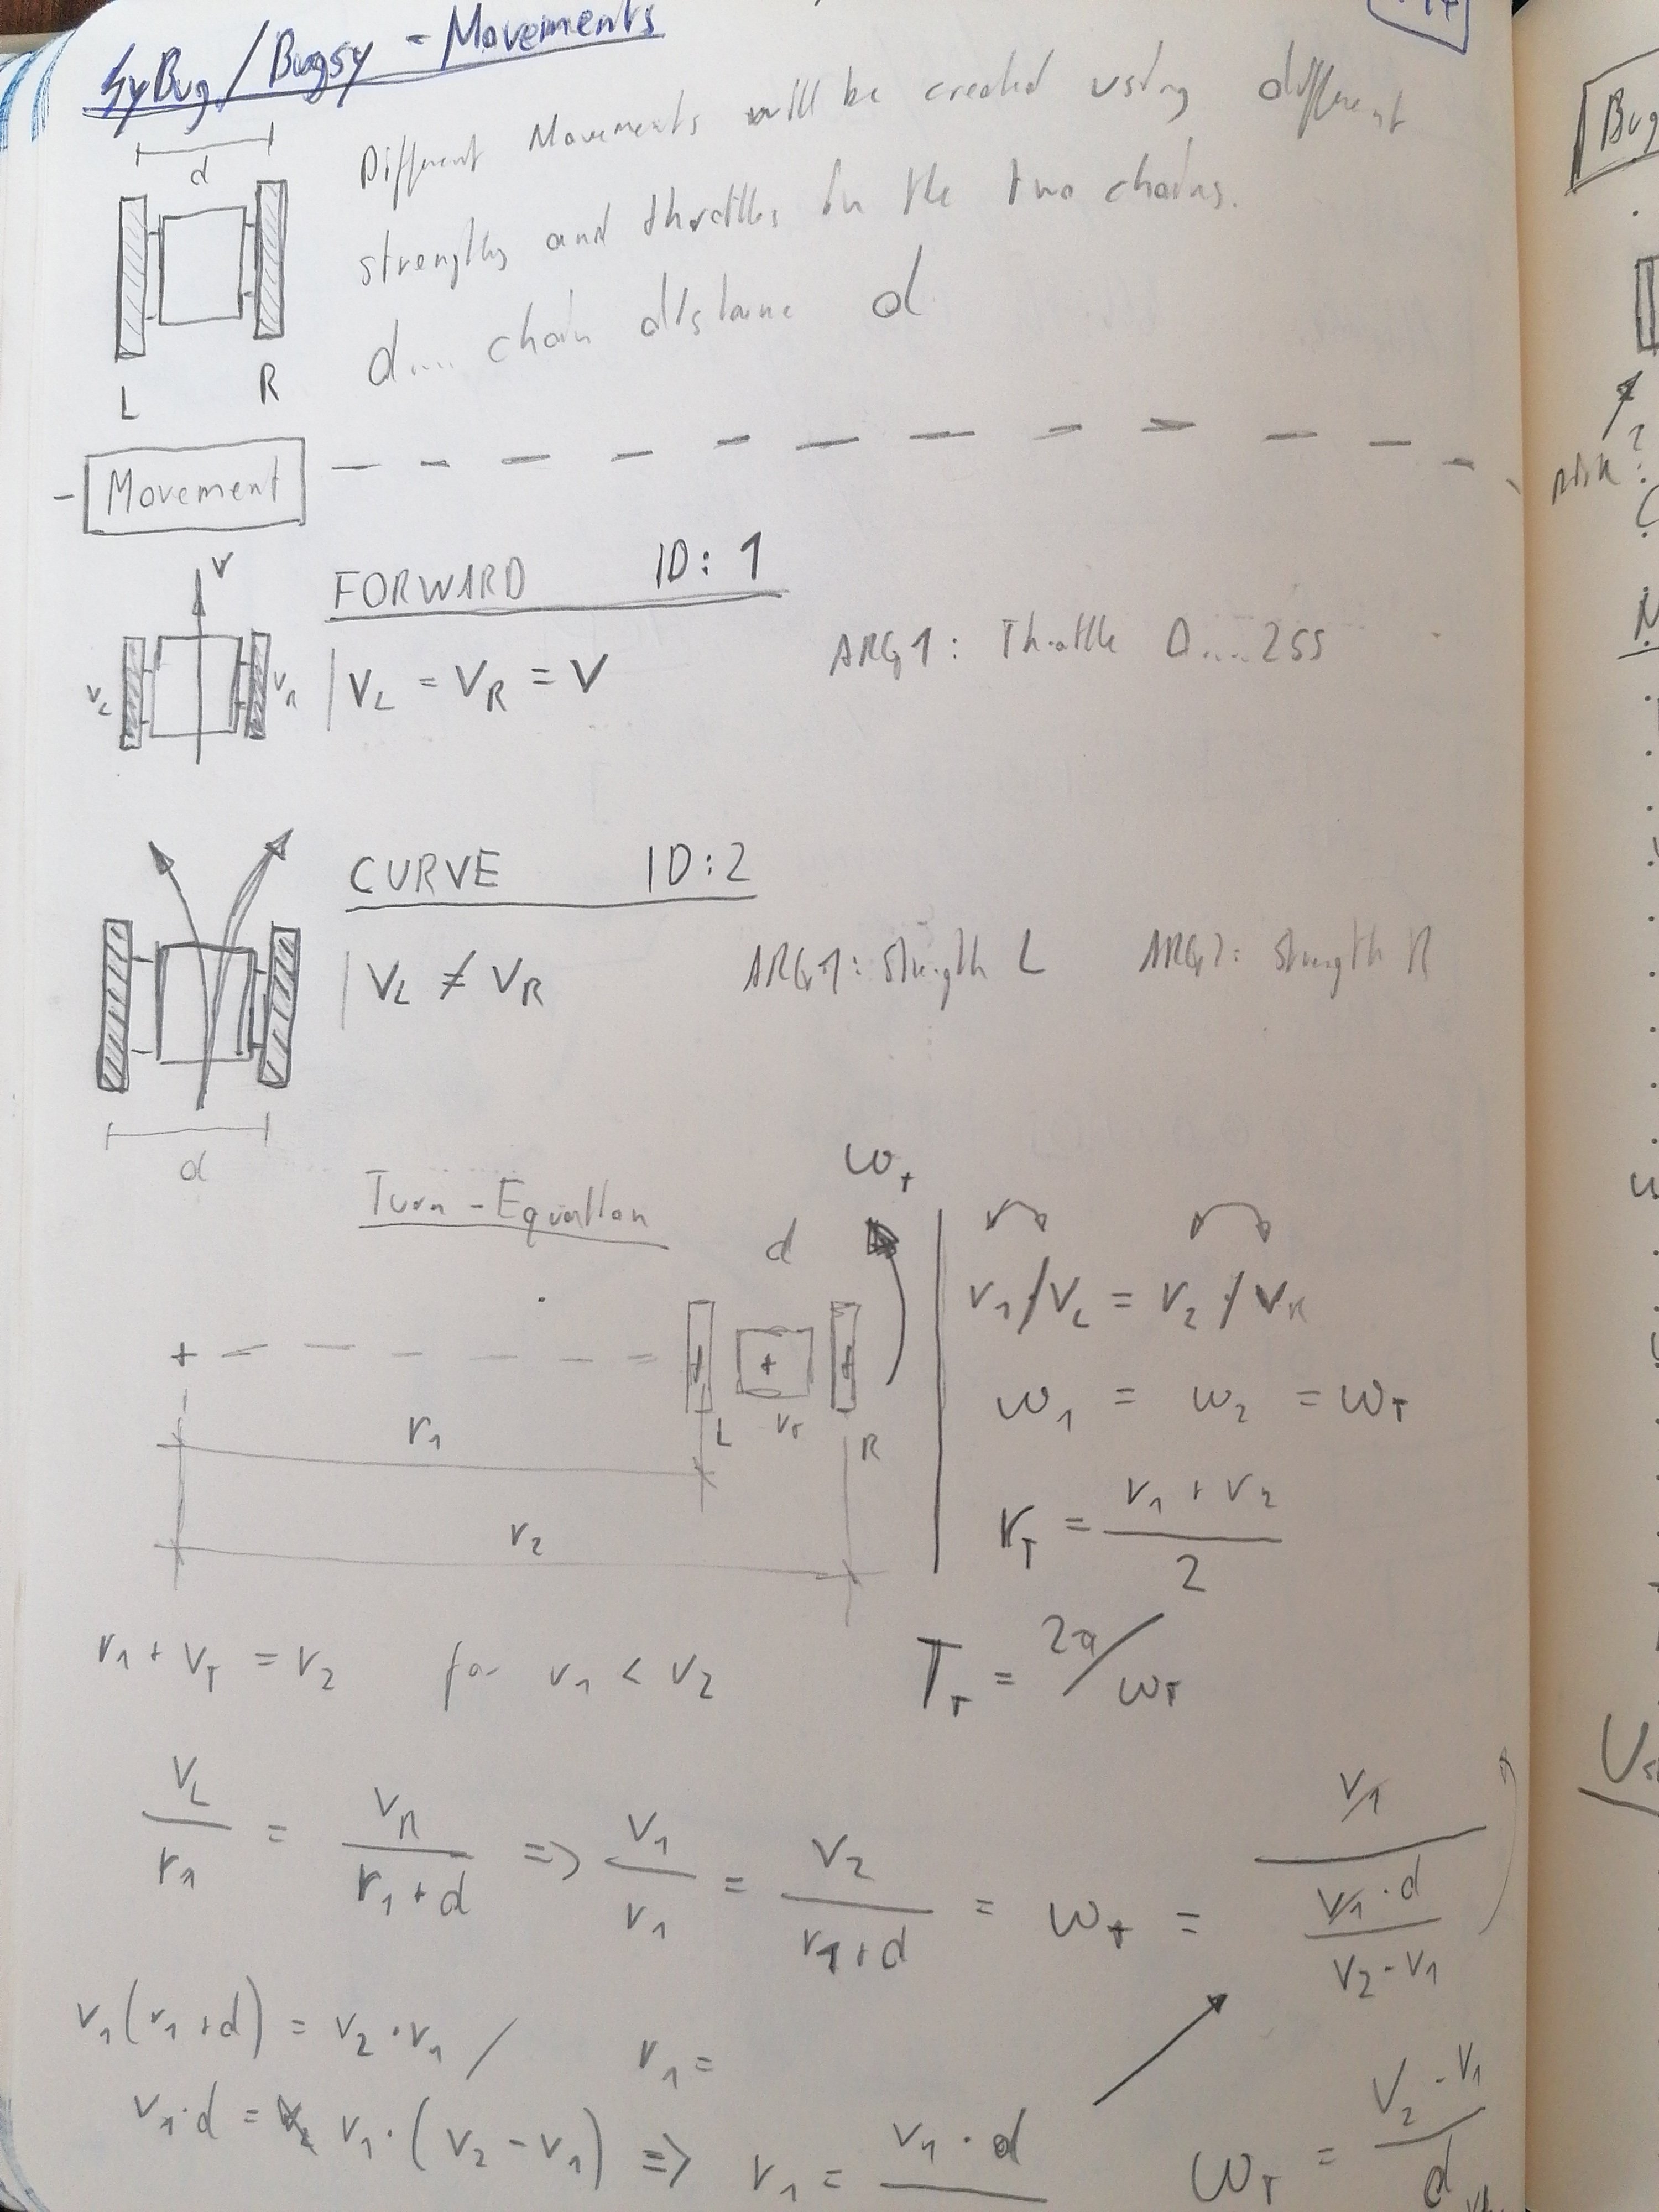 SyBug/Bugsy - Movements
d
Different Movements will be created using different
strengths and throttles in the two chains.
d.... chain distance d
L R
Movement
v
FORWARD ID: 1
v_L v_R
V_L = V_R = V
ARG1: Throttle 0....255
CURVE ID:2
V_L ≠ V_R
ARG1: Strength L ARG2: Strength R
d
Turn-Equation
ω_T
d
v_1/V_L = v_2/V_R
L v_T R
ω_1 = ω_2 = ω_T
r_1
r_T = (r_1 + r_2)/2
r_2
r_1 + v_T = r_2 for v_1 < v_2
T_T = 2π/ω_T
V_L/r_1 = V_R/(r_1+d) => V_1/r_1 = V_2/(r_1+d) = ω_T = V_1/((V_1·d)/(V_2-V_1))
v_1(r_1+d) = v_2·r_1 /
r_1 =
v_1·d = r_1·(v_2-v_1) => r_1 = v_1·d
ω_T = (V_2-V_1)/d
Bug